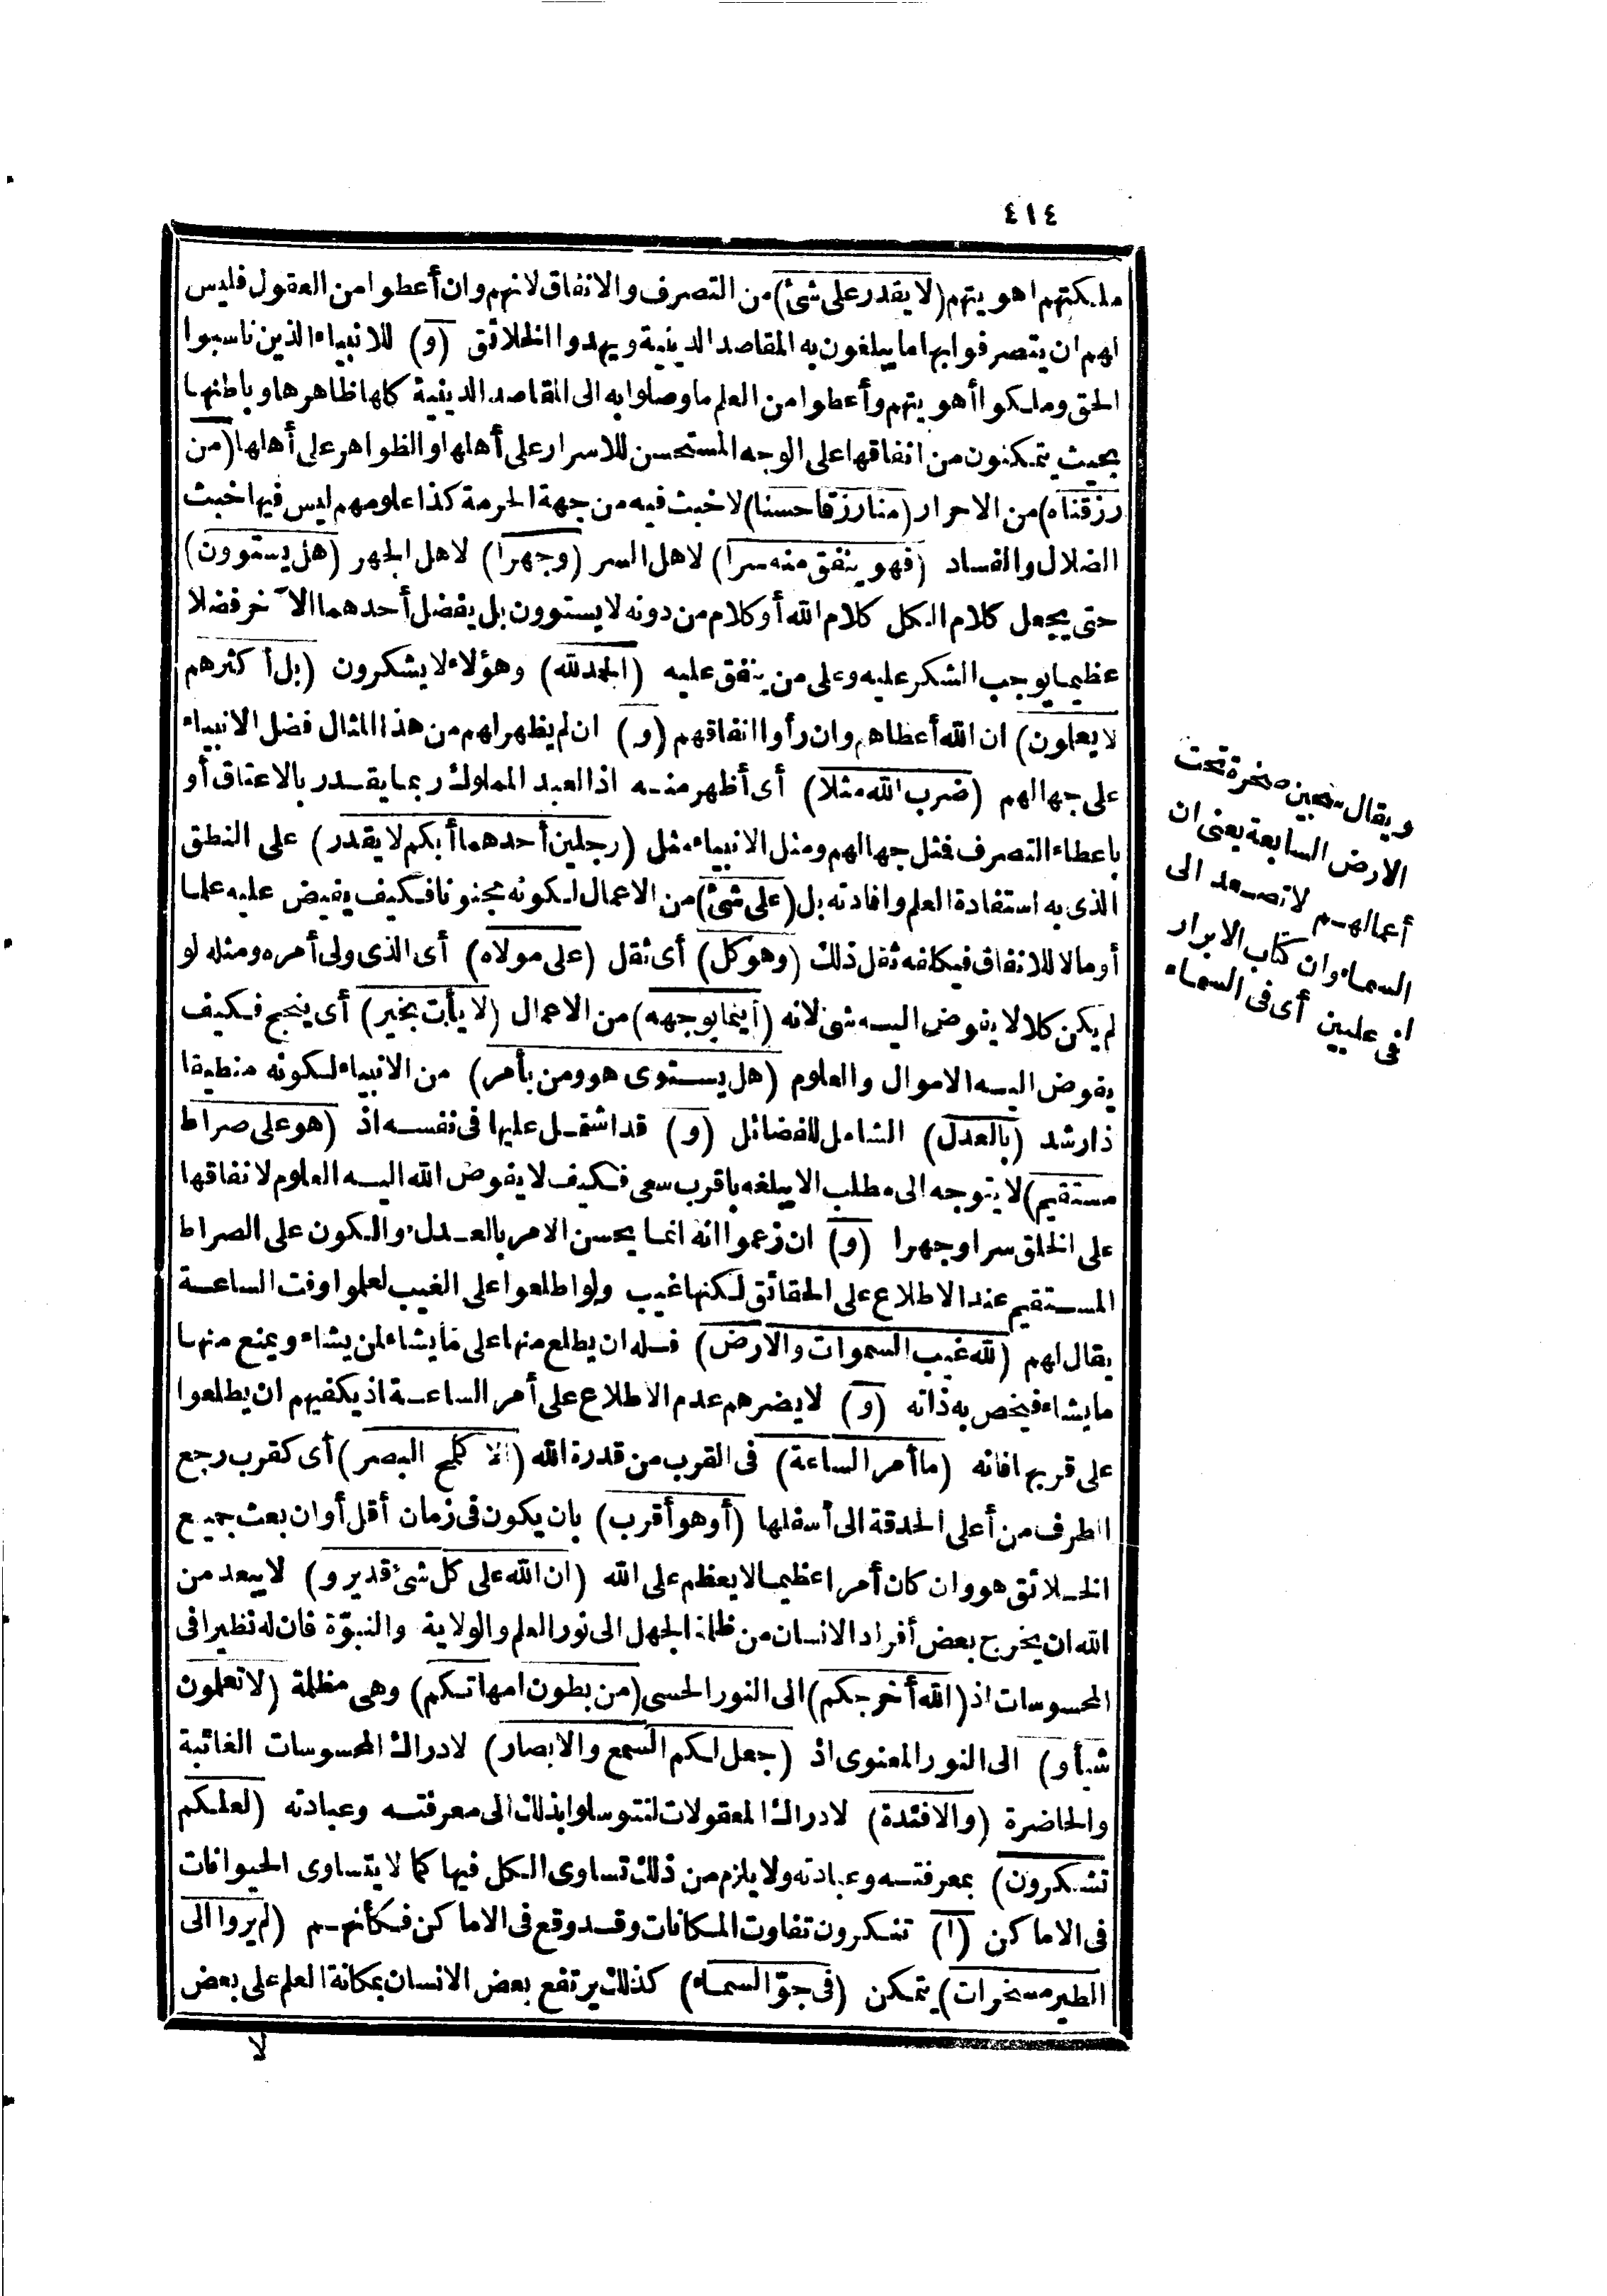 ٤١٤
ملكتهم اهويتهم (لا يقدر على شئ) من التصرف والانفاق لانهم وان أعطوا من العقول فليس
لهم ان يتصرفوا بها ما يبلغون به المقاصد الدينية ويهدوا الخلائق (و) للانبياء الذين ناسبوا
الحق وملكوا أهويتهم وأعطوا من العلم ما وصلوا به الى المقاصد الدينية كلها ظاهرها وباطنها
بحيث يتمكنون من انفاقها على الوجه المستحسن للاسرار على أهلها والظواهر على أهلها (من
رزقناه) من الاحرار (منا رزقا حسنا) لا خبث فيه من جهة الحرمة كذا علومهم ليس فيها خبث
الضلال والفساد (فهو ينفق منه سرا) لاهل السر (وجهرا) لاهل الجهر (هل يستوون)
حتى يجعل كلام الكل كلام الله أو كلام من دونه لا يستوون بل يفضل أحدهما الآخر فضلا
عظيما يوجب الشكر عليه وعلى من ينفق عليه (الحمد لله) وهؤلاء لا يشكرون (بل أكثرهم
لا يعلمون) ان الله أعطاهم وان رأوا انفاقهم (و) ان لم يظهر لهم من هذا المثال فضل الانبياء
على جهالهم (ضرب الله مثلا) أى أظهر منه اذ العبد المملوك ربما يقدر بالاعتاق أو
باعطاء التصرف فمثل جهالهم ومثل الانبياء مثل (رجلين أحدهما أبكم لا يقدر) على النطق
الذى به استفادة العلم وافادته بل (على شئ) من الاعمال لكونه مجنونا فكيف يفيض عليه علما
أو مالا للانفاق فيكلفه ثقل ذلك (وهو كل) أى ثقل (على مولاه) أى الذى ولى أمره ومثله لو
لم يكن كلا لا يفوض اليه شئ لانه (أينما يوجهه) من الاعمال (لا يأت بخير) أى ينجح فكيف
يفوض اليه الاموال والعلوم (هل يستوى هو ومن يأمر) من الانبياء لكونه منطيقا
ذا رشد (بالعدل) الشامل للفضائل (و) قد اشتمل عليها فى نفسه اذ (هو على صراط
مستقيم) لا يتوجه الى مطلب الا يبلغه باقرب سعى فكيف لا يفوض الله اليه العلوم لانفاقها
على الخلق سرا وجهرا (و) ان زعموا انه انما يحسن الامر بالعدل والكون على الصراط
المستقيم عند الاطلاع على الحقائق لكنها غيب ولو اطلعوا على الغيب لعلموا وقت الساعة
يقال لهم (لله غيب السموات والارض) فله ان يطلع منها على ما يشاء لمن يشاء ويمنع منها
ما يشاء فيخص به ذاته (و) لا يضرهم عدم الاطلاع على أمر الساعة اذ يكفيهم ان يطلعوا
على قربها فانه (ما أمر الساعة) فى القرب من قدرة الله (الا كلمح البصر) أى كقرب رجع
الطرف من أعلى الحدقة الى أسفلها (أو هو أقرب) بان يكون فى زمان أقل أوان بعث جميع
الخلائق هو وان كان أمرا عظيما لا يعظم على الله (ان الله على كل شئ قدير و) لا يبعد من
الله ان يخرج بعض أفراد الانسان من ظلمة الجهل الى نور العلم والولاية والنبوّة فان له نظيرا فى
المحسوسات اذ (الله أخرجكم) الى النور الحسى (من بطون امهاتكم) وهى مظلمة (لا تعلمون
شيأ و) الى النور المعنوى اذ (جعل لكم السمع والابصار) لادراك المحسوسات الغائبة
والحاضرة (والافئدة) لادراك المعقولات لتتوسلوا بذلك الى معرفته وعبادته (لعلكم
تشكرون) بمعرفته وعبادته ولا يلزم من ذلك تساوى الكل فيها كما لا يتساوى الحيوانات
فى الاماكن (ا) تنكرون تفاوت المكانات وقد وقع فى الاماكن فكأنهم (لم يروا الى
الطير مسخرات) يتمكن (فى جوّ السماء) كذلك يرتفع بعض الانسان بمكانة العلم على بعض
لا
ويقال سجين صخرة تحت
الارض السابعة يعنى ان
أعمالهم لا تصعد الى
السماء وان كتاب الابرار
لفى عليين أى فى السماء